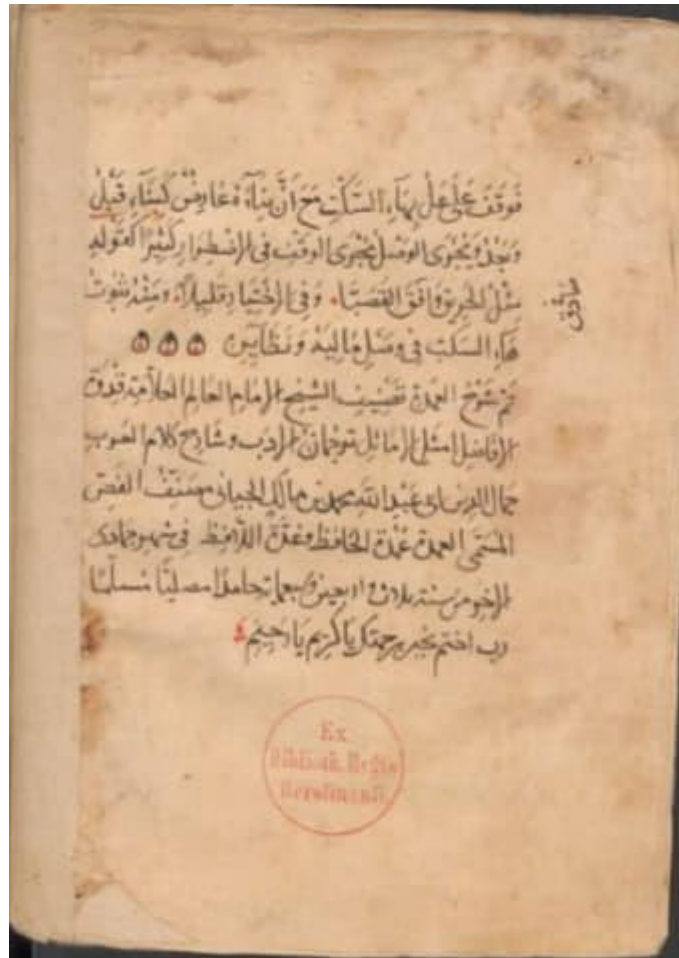 فوقف على عل بهاء السكت مع ان بناءه عارض كبناء قبل
وبعد ويجرى الوصل مجرى الوقف فى الاضطرار كثيرا كقوله
مثل الحريق وافق القصبا وفى الاختيار قليلا ومنه ثبوت
هاء السكت فى وصل ماليه ونظاير
تم شرح العمدة تصنيف الشيخ الامام العالم العلامة قدوة
الافاضل امثل الاماثل ترجمان الادب وشارح كلام العرب
جمال الدين ابى عبد الله محمد بن مالك الجيانى مصنف
المسمى العمدة عمدة الحافظ وعدة اللافظ فى شهر جمادى
الاخر من سنة ثلاث واربعين وسبعماية حامدا مصليا مسلما
رب اختم بخير برحمتك يا كريم يا رحيم
Ex
Biblioth. Regia
Berolinensi.